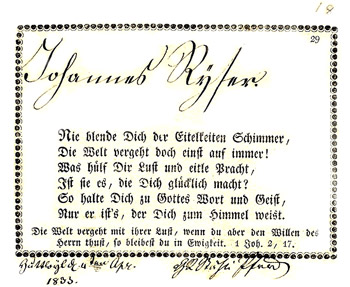 29
Johannes Ryser.
Nie blende Dich der Eitelkeiten Schimmer,
Die Welt vergeht doch einst auf immer!
Was hülf Dir Lust und eitle Pracht,
Ist sie es, die Dich glücklich macht?
So halt Dich zu Gottes Wort und Geist,
Nur er ist's, der Dich zum Himmel weist.
Die Welt vergeht mit ihrer Lust, wenn du aber den Willen des
Herrn thust, so bleibest du in Ewigkeit. 1 Joh. 2, 17.
Apr.
1833.